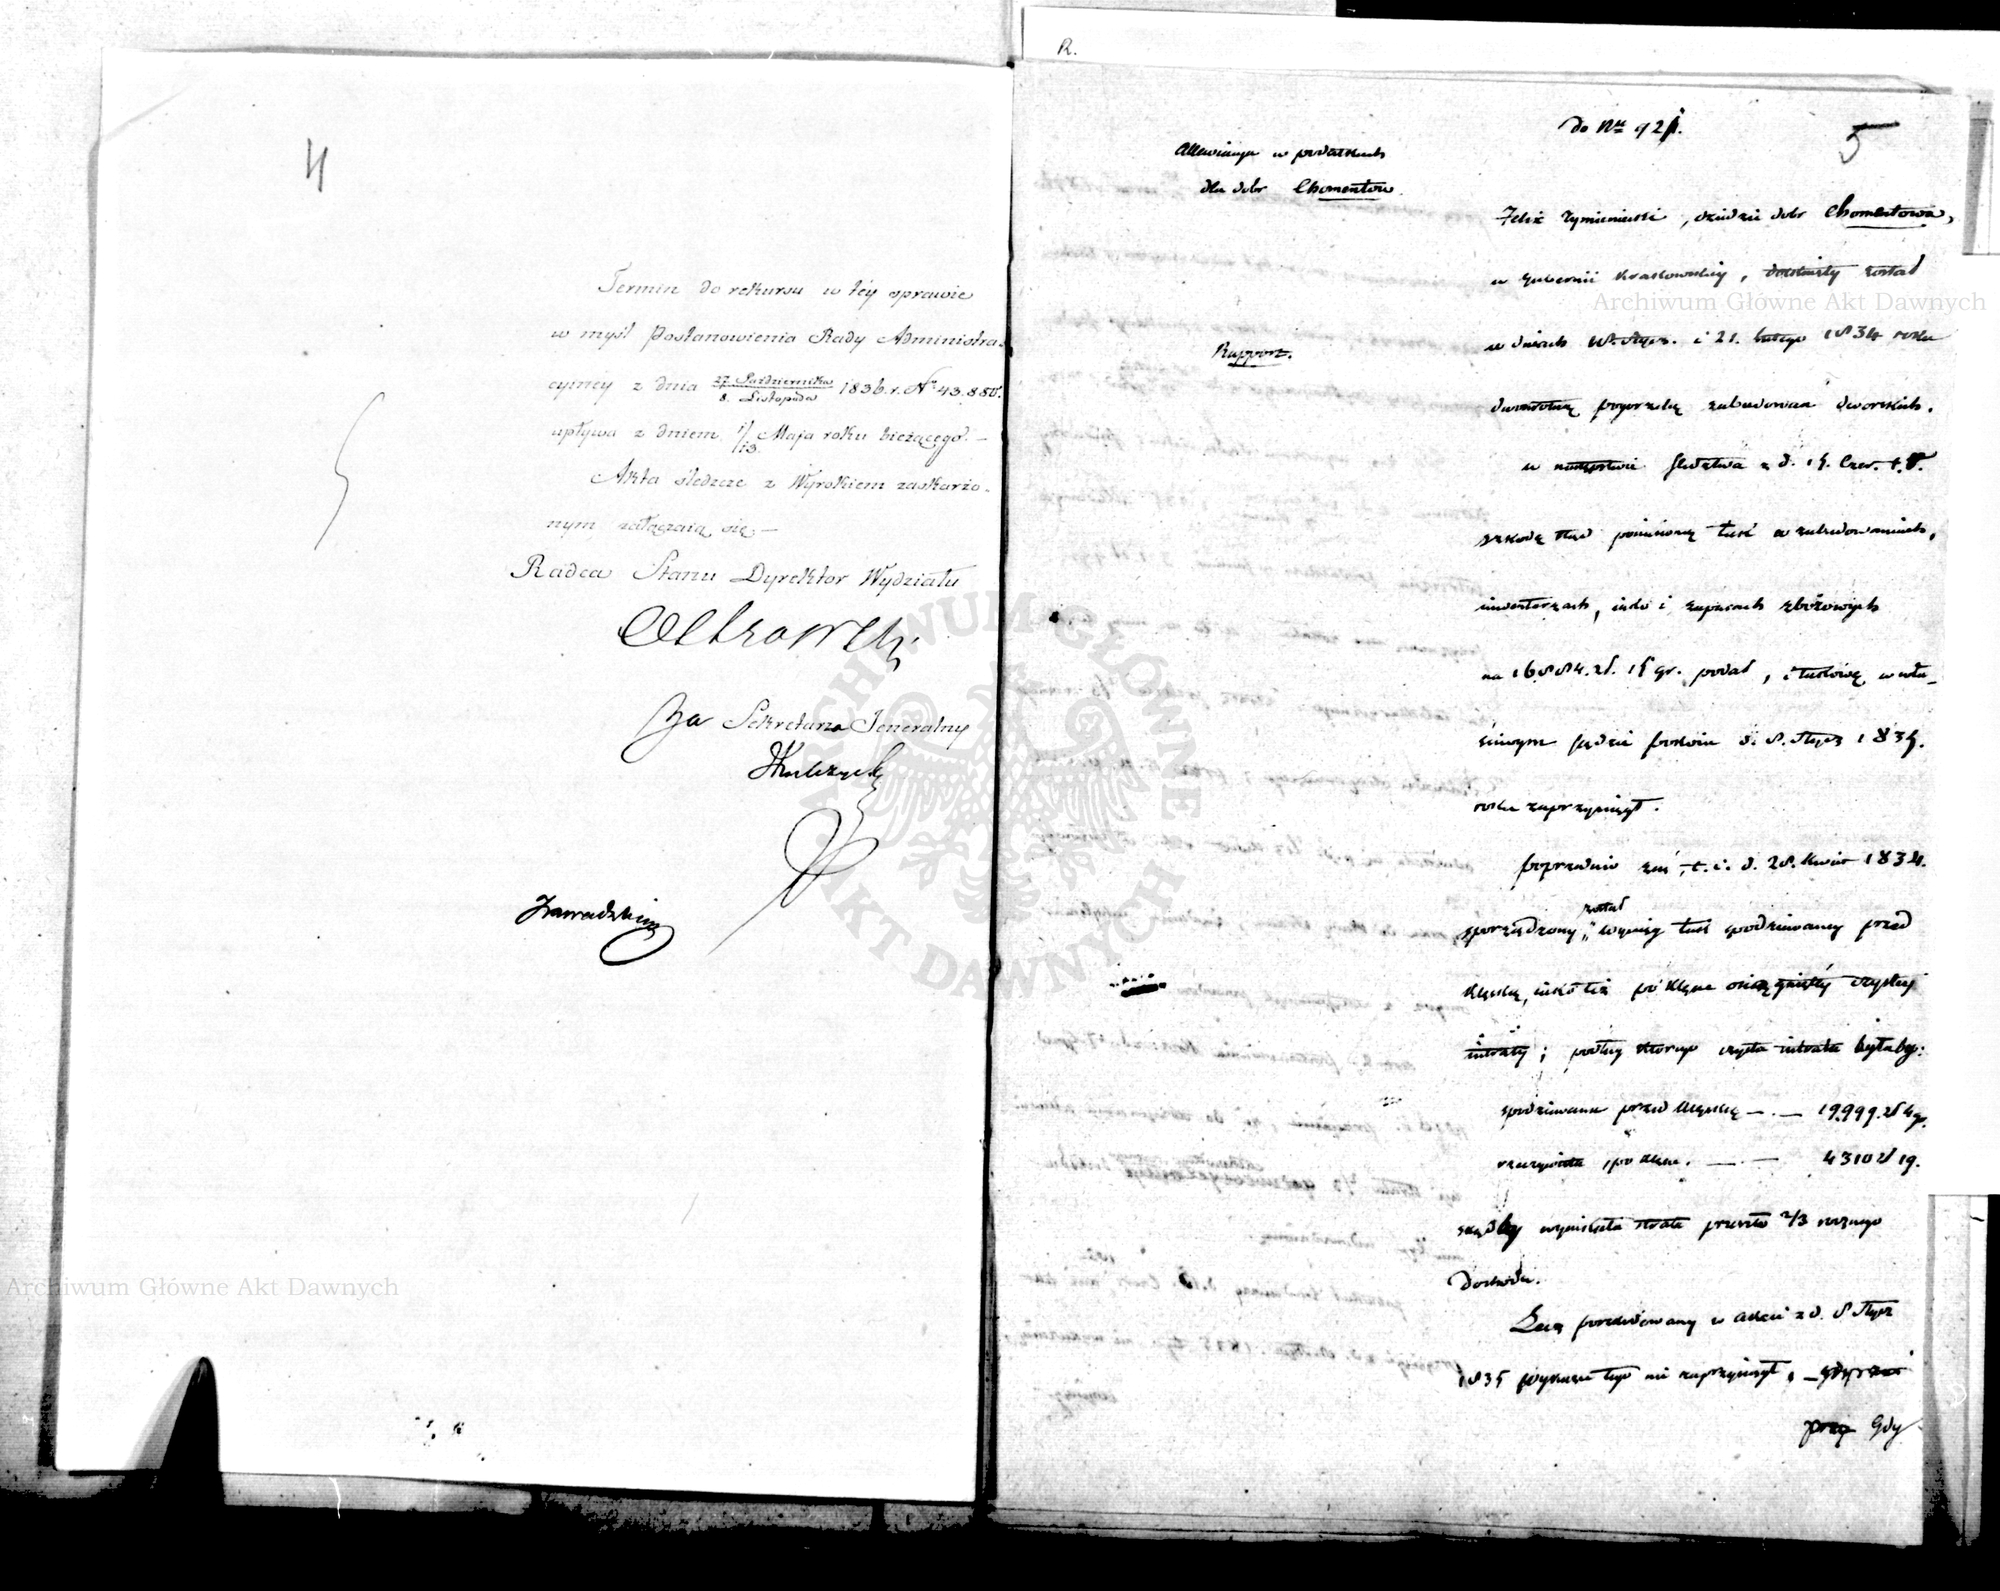 4
Termin do rekursu w téy sprawie
w myśl Postanowienia Rady Administra-
cyiney z dnia 27. Października / 8. Listopada 1836. r. Nr 43.880.
upływa z dniem 1/13. Maja roku bieżącego. —
Akta śledcze z Wyrokiem zaskarżo-
nym załączaią się. —
Radca Stanu Dyrektor Wydziału
Za Sekretarza Jeneralny
R.
do Nru 921.
5
Allewiacya w podatkach
dla dobr Chomentow
Rapport.
Felix Zymieniewski, dziedzic dobr Chomentowa,
w gubernii Krakowskiej, dotknięty został
w dniach 18. Stycz. i 21. Lutego 1834 roku
dwukrotną pogorzelą zabudowań dworskich.
w następstwie śledztwa z d. 15. Czer. t. r.
szkodę stąd poniesioną tak w zabudowaniach,
inwentarzach, jako i zapasach zbożowych
na 16884. zł. 15 gr. podał, i takową w wła-
ściwym sądzie pokoiu d. 8. Stycz 1835.
roku zaprzysiągł.
poprzednio zaś, t. i. d. 28. Kwiet 1834.
sporządzony został wyciąg tak spodziewaney przed
klęską, iako też po klęsce osiągniętéy czystey
intraty; podług którego czysta intrata byłaby:
spodziewana przed klęską — . — 19.999. zł 4 gr.
rzeczywista po klęsce. — . — 4310 zł 19.
skądby wynikała strata przeszło 2/3 rocznego
dochodu.
Lecz poszkodowany w akcie z d. 8 Stycz
1835 wykazu tego nie zaprzysiągł,
Gdy
Archiwum Główne Akt Dawnych
Archiwum Główne Akt Dawnych
ARCHIWUM GŁÓWNE AKT DAWNYCH